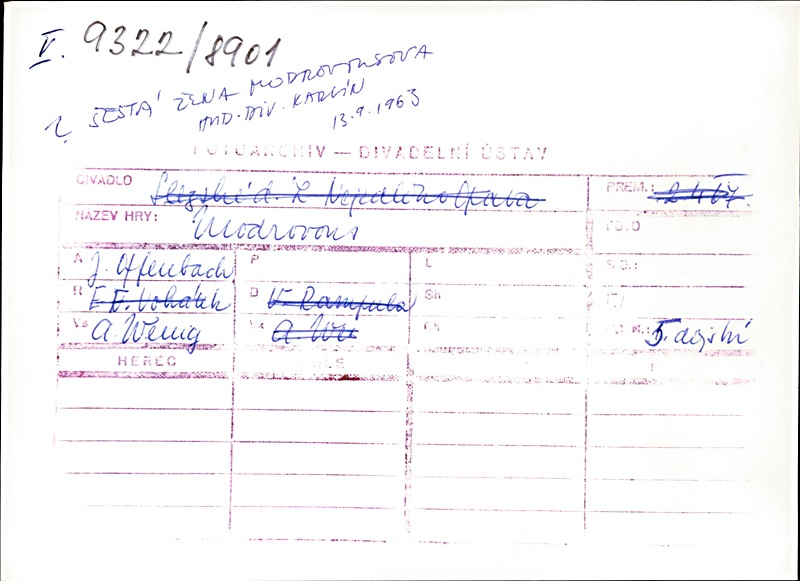 V. 9322/8901
?, ŠESTÁ ŽENA MODROVOUSOVA
HUD. DIV. KARLÍN
13.9.1963
FOTOARCHIV — DIVADELNÍ ÚSTAV
DIVADLO Slezské d. Z. Nejedlého Opava PREM.: 2 4 67.
NÁZEV HRY: Modrovous FOTO
A J. Offenbach P L S.G.:
R E. F. Vohálík D V. Rampula Sh
Vs A. Wenig A. We Ch I. dějství
HEREC